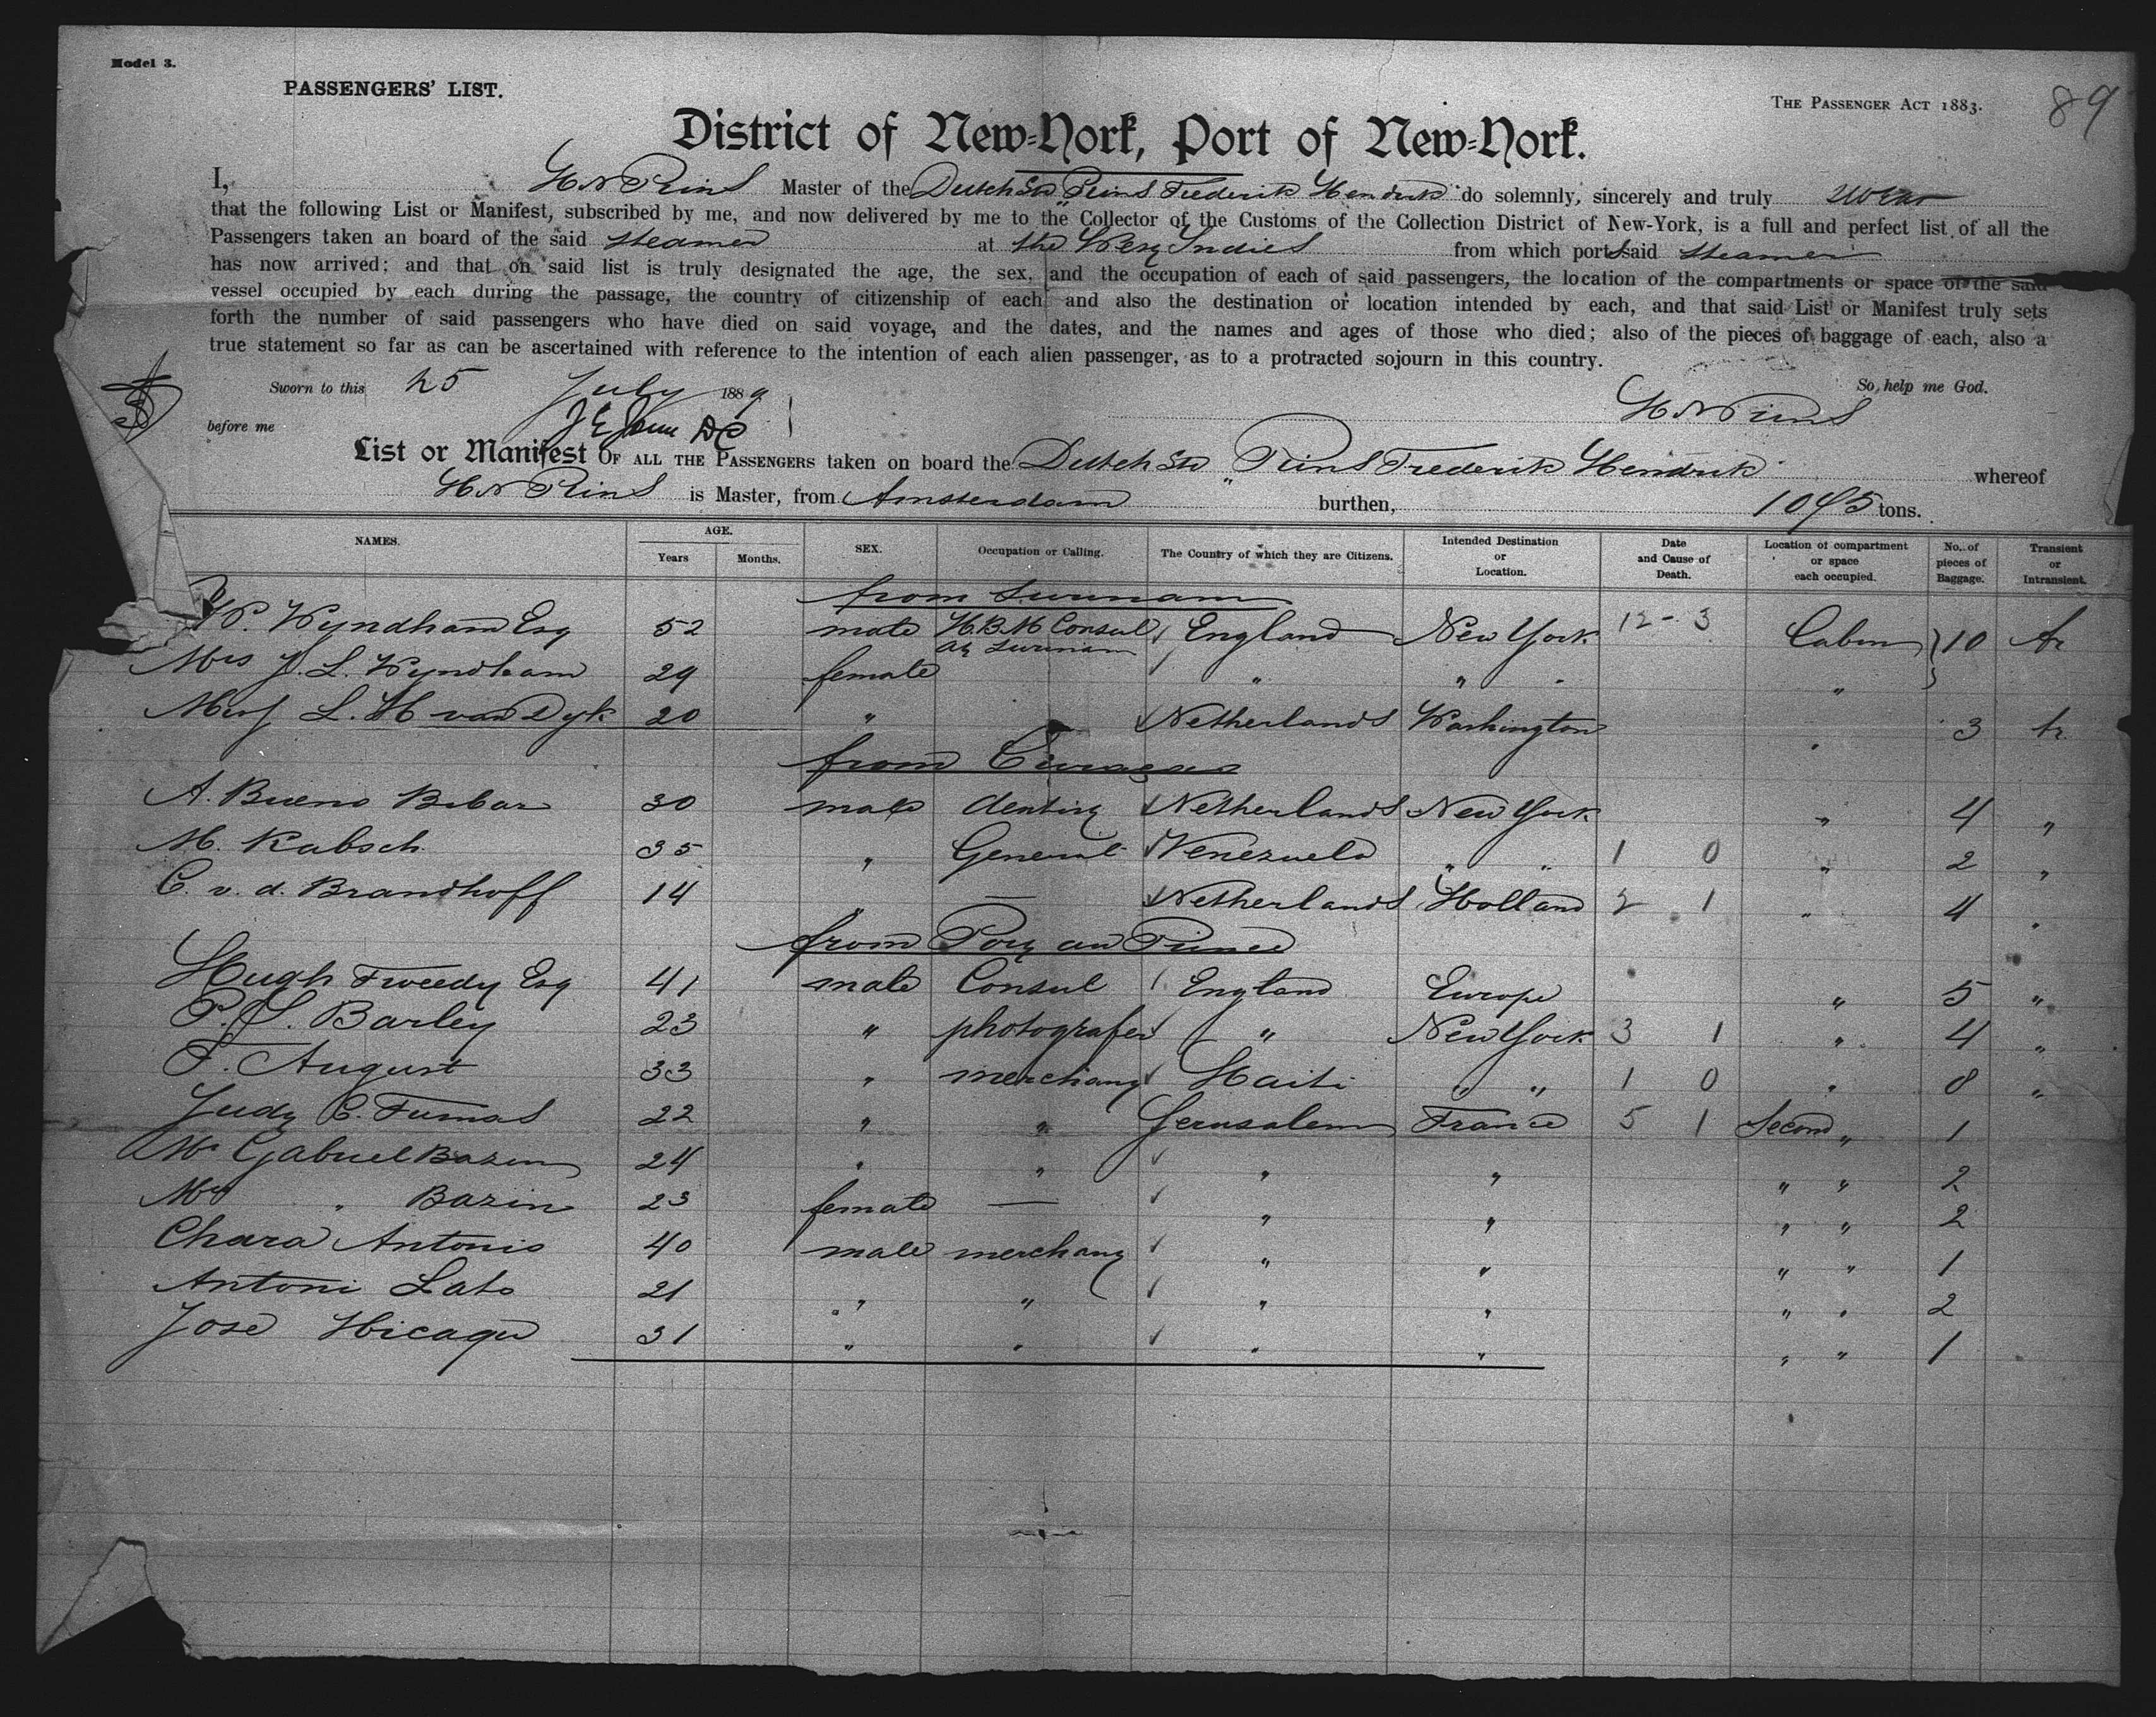 Model 3.
PASSENGERS' LIST.
THE PASSENGER ACT 1883.
89
District of New-York, Port of New-York.
I, H N Prins Master of the Dutch Str Prins Frederik Hendrik do solemnly, sincerely and truly swear
that the following List or Manifest, subscribed by me, and now delivered by me to the Collector of the Customs of the Collection District of New-York, is a full and perfect list of all the
Passengers taken an board of the said steamer at the West Indies from which ports said steamer
has now arrived; and that on said list is truly designated the age, the sex, and the occupation of each of said passengers, the location of the compartments or space of the said
vessel occupied by each during the passage, the country of citizenship of each and also the destination or location intended by each, and that said List or Manifest truly sets
forth the number of said passengers who have died on said voyage, and the dates, and the names and ages of those who died; also of the pieces of baggage of each, also a
true statement so far as can be ascertained with reference to the intention of each alien passenger, as to a protracted sojourn in this country.
Sworn to this 25 July 1889 So help me God.
before me DC H N Prins
List or Manifest OF ALL THE PASSENGERS taken on board the Dutch Str "Prins Frederik Hendrik" whereof
H N Prins is Master, from Amsterdam burthen, tons.
NAMES. AGE. Years Months. SEX. Occupation or Calling. The Country of which they are Citizens. Intended Destination or Location. Date and Cause of Death. Location of compartment or space each occupied. No. of pieces of Baggage. Transient or Intransient.
from Surinam
W. Wyndham Esq 52 male H.B.M Consul at Surinam England New York 12 - 3 Cabin } 10 tr
Mrs J. L. Wyndham 29 female " " " "
Miss L. H van Dyk 20 " Netherlands Washington " 3 tr.
from Curaçao
A. Bueno Bibaz 30 male dentist Netherlands New York " 4 "
M. Kabsch 35 " General Venezuela " " 1 0 " 2 "
C. v. d. Brandhoff 14 " — Netherlands Holland 2 1 " 4 "
from Port au Prince
Hugh Tweedy Esq 41 male Consul England Europe " 5 "
P. S. Barley 23 " photografer " New York 3 1 " 4 "
F. August 33 " merchant Haiti " " 1 0 " 8 "
Judy C. Tumas 22 " " Jerusalem France 5 1 Second " 1
Mr Gabriel Bazin 24 " " " " " " 2
Mrs " Bazin 23 female — " " " " 2
Chara Antonio 40 male merchant " " " " 1
Antoni Lato 21 " " " " " " 2
Jose 31 " " " " " " 1